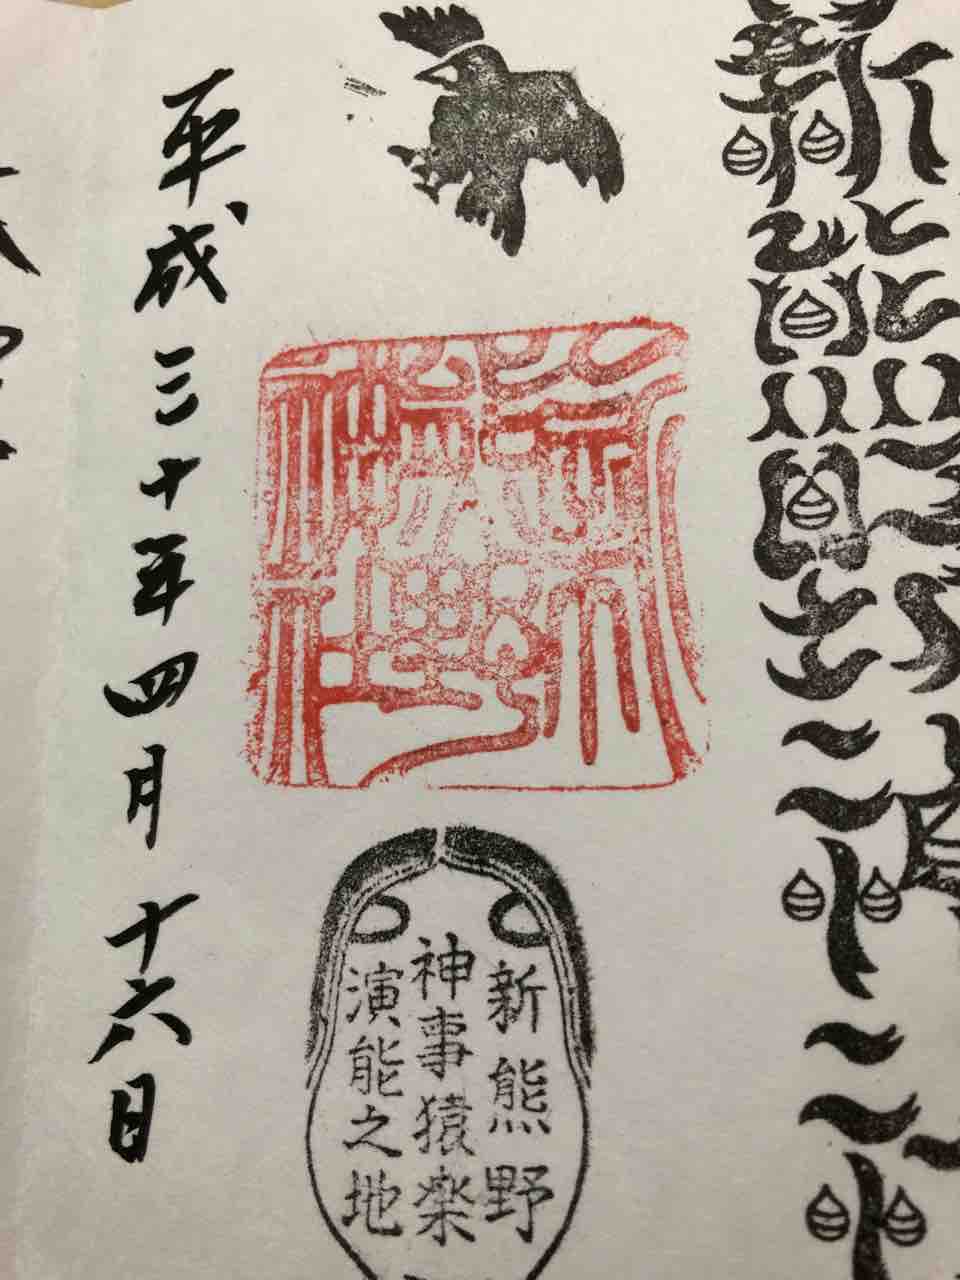 新熊野神社
新熊野
神事猿楽
演能之地
平成三十年四月十六日